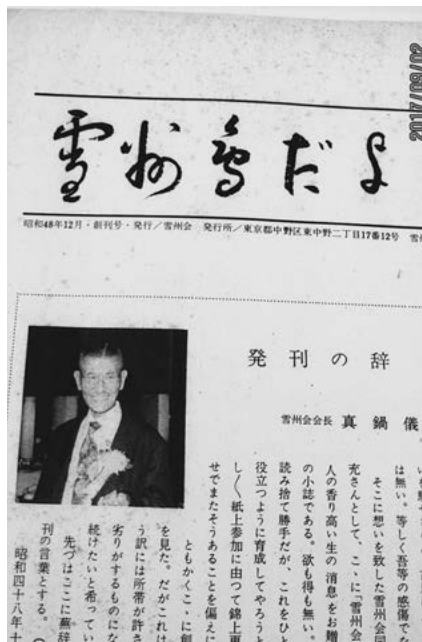 2017/09/02
雪州會だよ
昭和48年12月・創刊号・発行/雪州会 発行所/東京都中野区東中野二丁目17番12号 雪
発刊の辞
雪州会会長 真鍋儀
は無い。等しく吾等の感傷でな
そこに想いを致した雪州会同
充さんとして、こゝに"雪州会
人の香り高い生の消息をお贈
の小誌である。欲も得も無い
読み捨て勝手だが、これをひ
役立つように育成してやろうと
し〱紙上参加に由って錦上更
せでまたそうあることを偏えに
ともかくこゝに創
を見た。だがこれは
う訳には所帯が許さ
劣りがするものにな
続けたいと希ってい
先づはここに蕪辞
刊の言葉とする。
昭和四十八年十